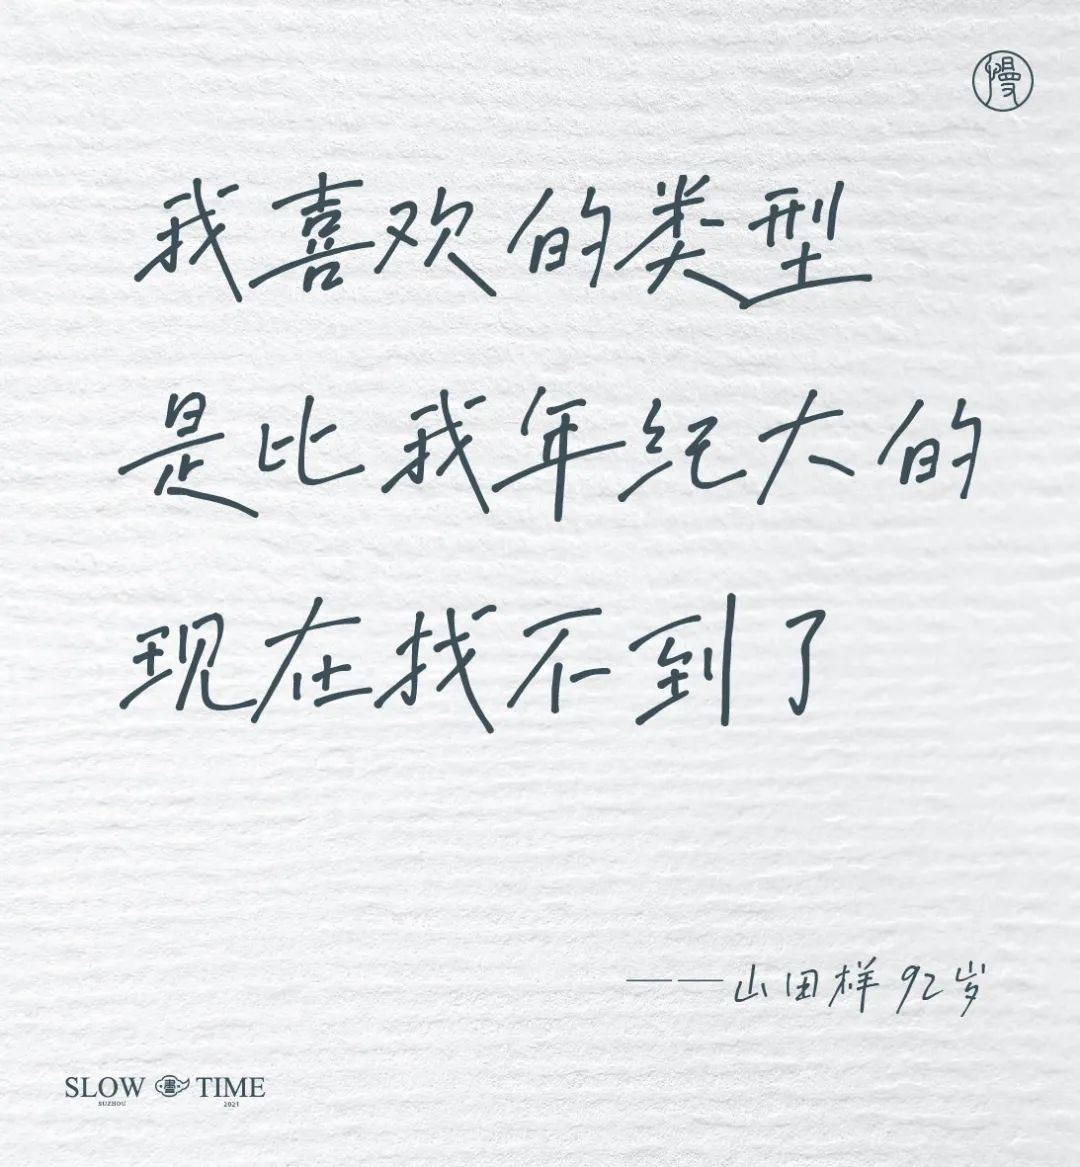 慢
我喜欢的类型
是比我年纪大的
现在找不到了
——山田样 92岁
SLOW TIME
SUZHOU 2021